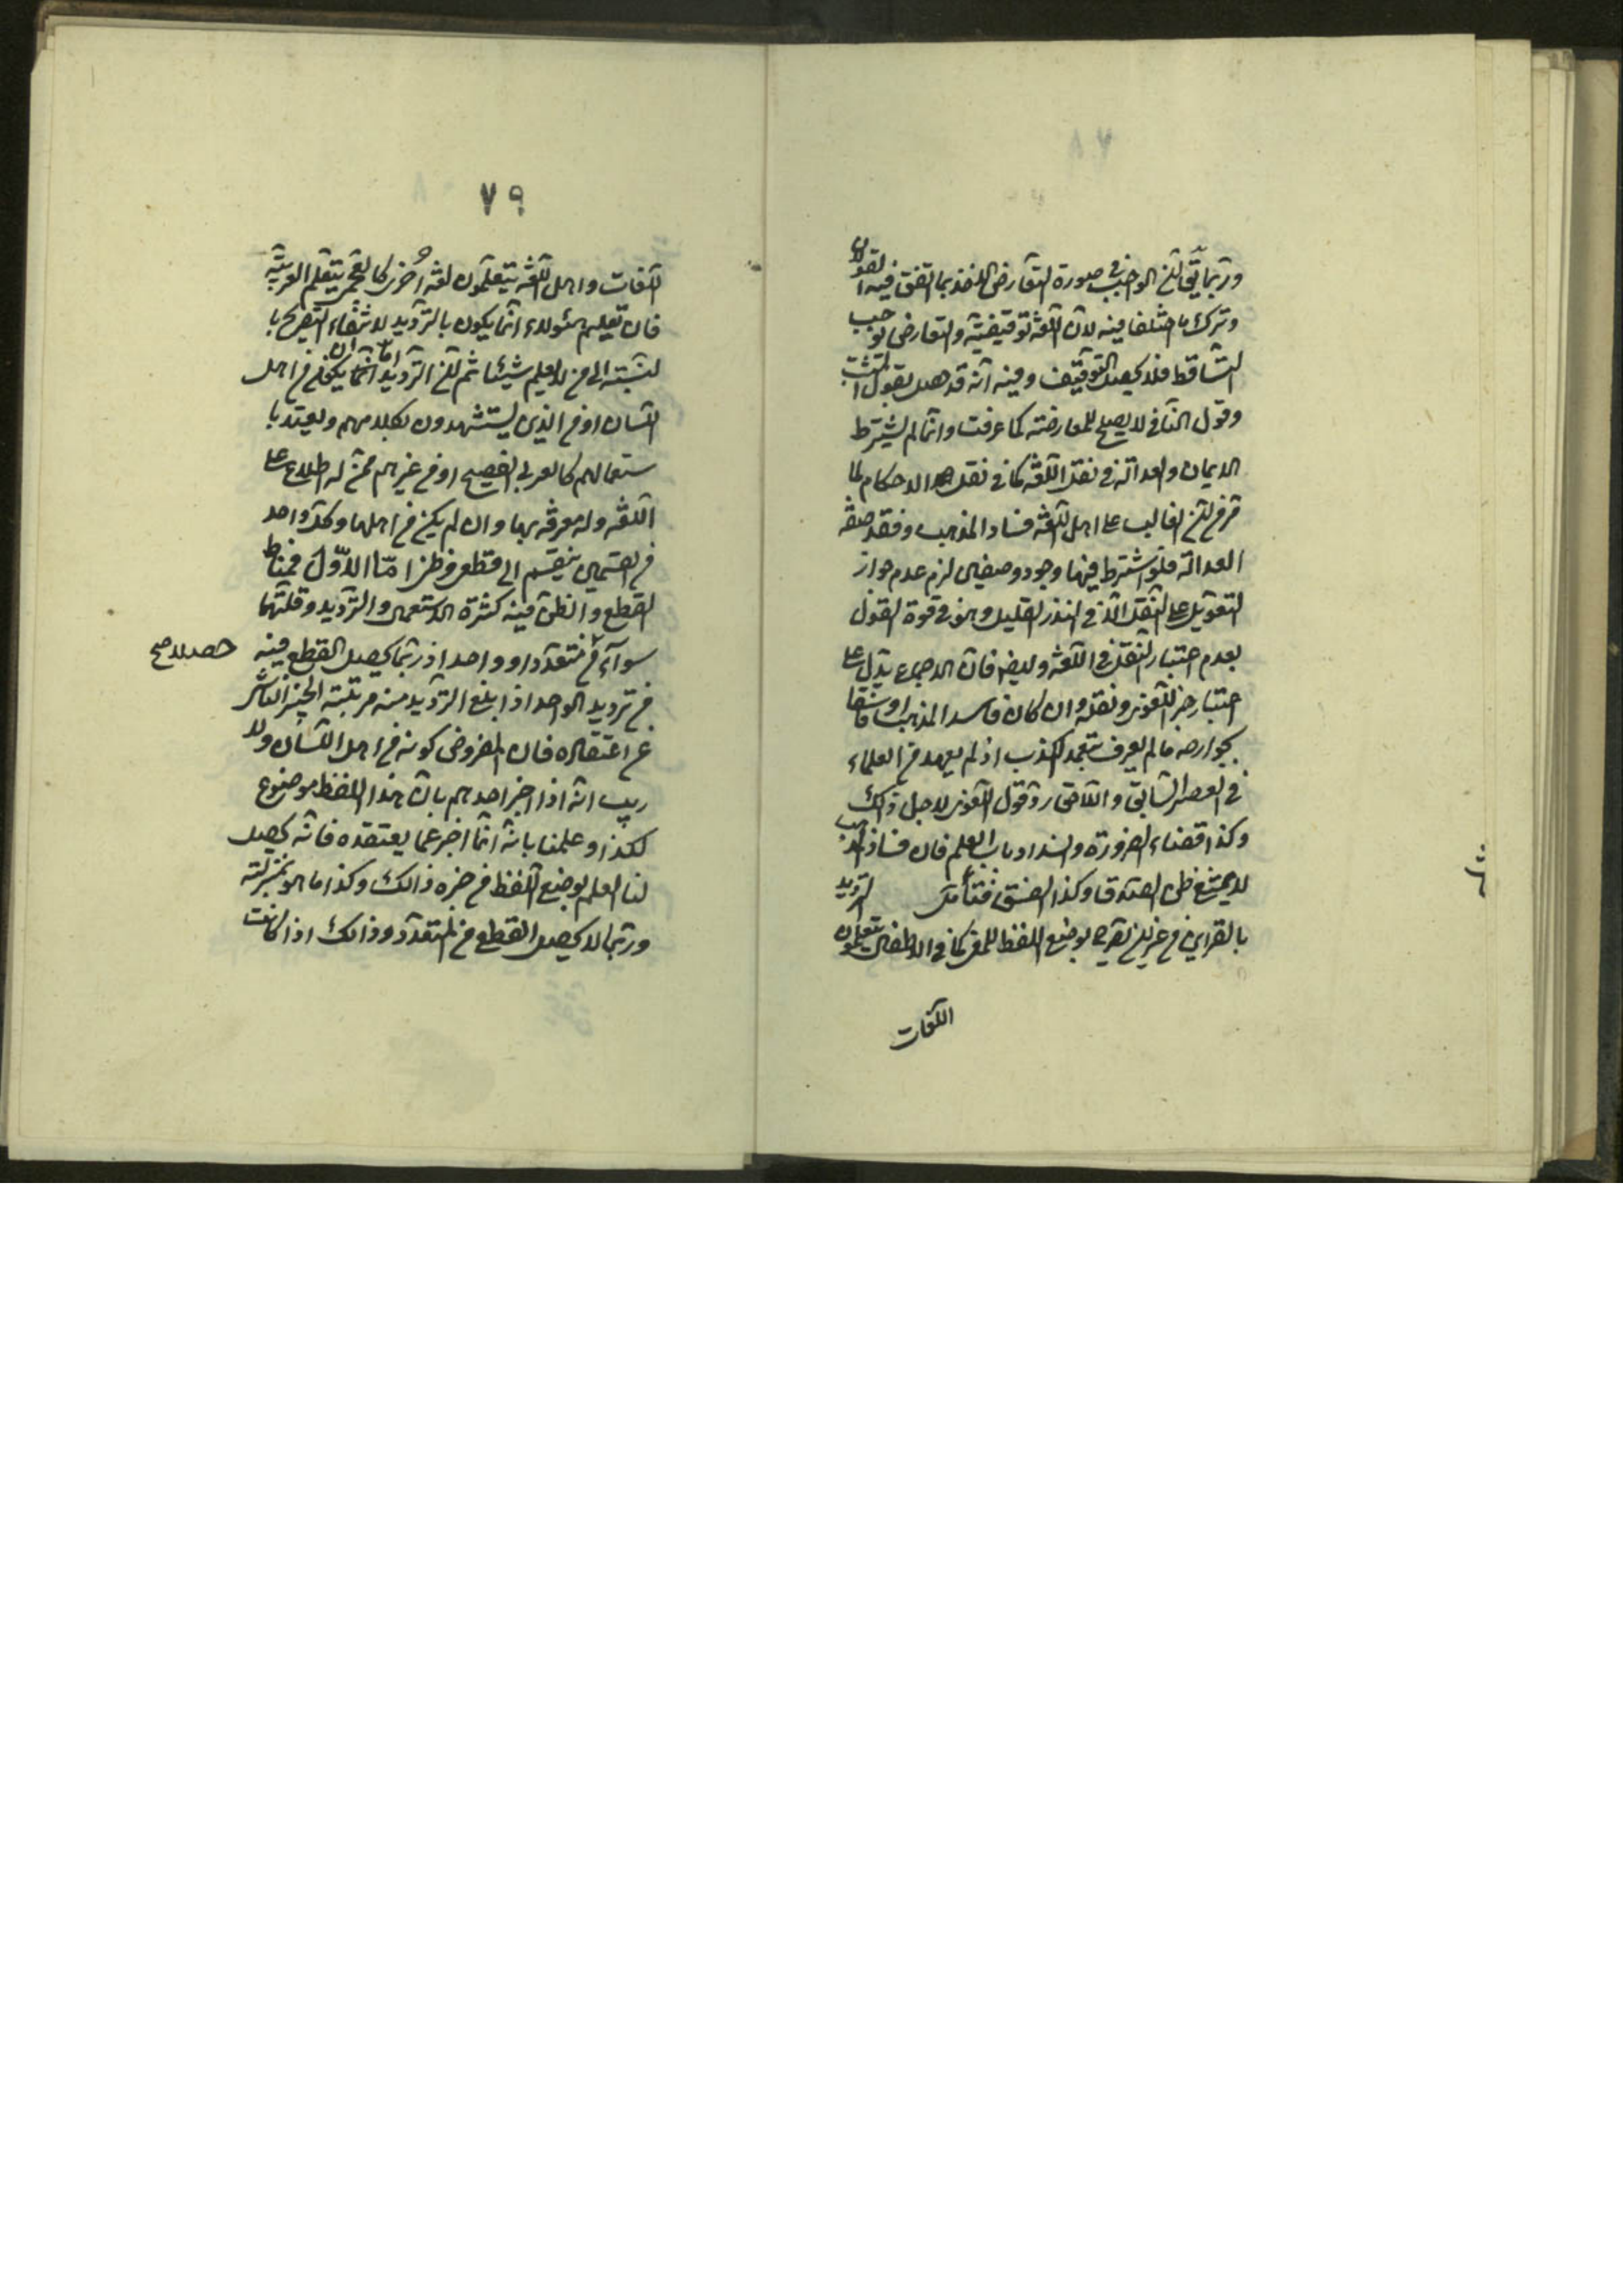 وربما يق ان الواجب في صورة التعارض الاخذ بما اتفق فيه القولان
وترك ما اختلفا فيه لان اللغة توقيفية والتعارض يوجب
التساقط فلا يحصل التوقيف وفيه انه قد حصل بقول المثبت
وقول النافي لا يصلح للمعارضة كما عرفت وانما لم يشترط
الايمان والعدالة في نقل اللغة كما في نقل الاحكام لما
من ان الغالب على اهل اللغة فساد المذهب وفقد صفة
العدالة فلو اشترط فيها وجود وصفين لزم عدم جواز
التعويل على النقل الا في النذر القليل وهو في قوة القول
بعدم اعتبار النقل في اللغة وايضا فان الاجماع يدل على
اعتبار خبر اللغوي ونقله وان كان فاسد المذهب او فاسقا
بجوارحه ما لم يعرف بتعمد الكذب اذ لم يعهد من العلماء
في العصر السابق واللاحق رد قول اللغوي لاجل ذلك
وكذا قضاء الضرورة وانسداد باب العلم فان فساد المذهب
لا يمنع ظن الصدق وكذا الفسق فتأمل الترديد
بالقراين من غير تصريح بوضع اللفظ للمعنى كما في الاطفال يتعلمون
اللغات
٧٩
اللغات واهل اللغة يتعلمون لغة اخرى كالعجمي يتعلم العربية
فان تعليم هؤلاء انما يكون بالترديد لانتفاء التصريح با
لنسبة الى من لا يعلم شيئا ثم ان الترديد اما ان يكون من اهل
اللسان او من الذين يستشهدون بكلامهم ويعتد با
ستعمالهم كالعربي الفصيح او من غيرهم ممن له اطلاع على
اللغة وله معرفة بها وان لم يكن من اهلها وكل واحد
من القسمين ينقسم الى قطعي وظني اما الاول فمناط
القطع والظن فيه كثرة الاستعمال والترديد وقلتهما
سواء من متعدد او واحد اذ ربما يحصل القطع فيه
من ترديد الواحد اذا بلغ الترديد منه مرتبة الخبر الناشر
عن اعتقاده فان المفروض كونه من اهل اللسان ولا
ريب انه اذا اخبر احدهم بان هذا اللفظ موضوع
لكذا وعلمنا بانه انما اخبر عما يعتقده فانه يحصل
لنا العلم بوضع اللفظ من خبره ذالك وكذا ما هو بمنزلته
وربما لا يحصل القطع من المتعدد وذالك اذا كانت